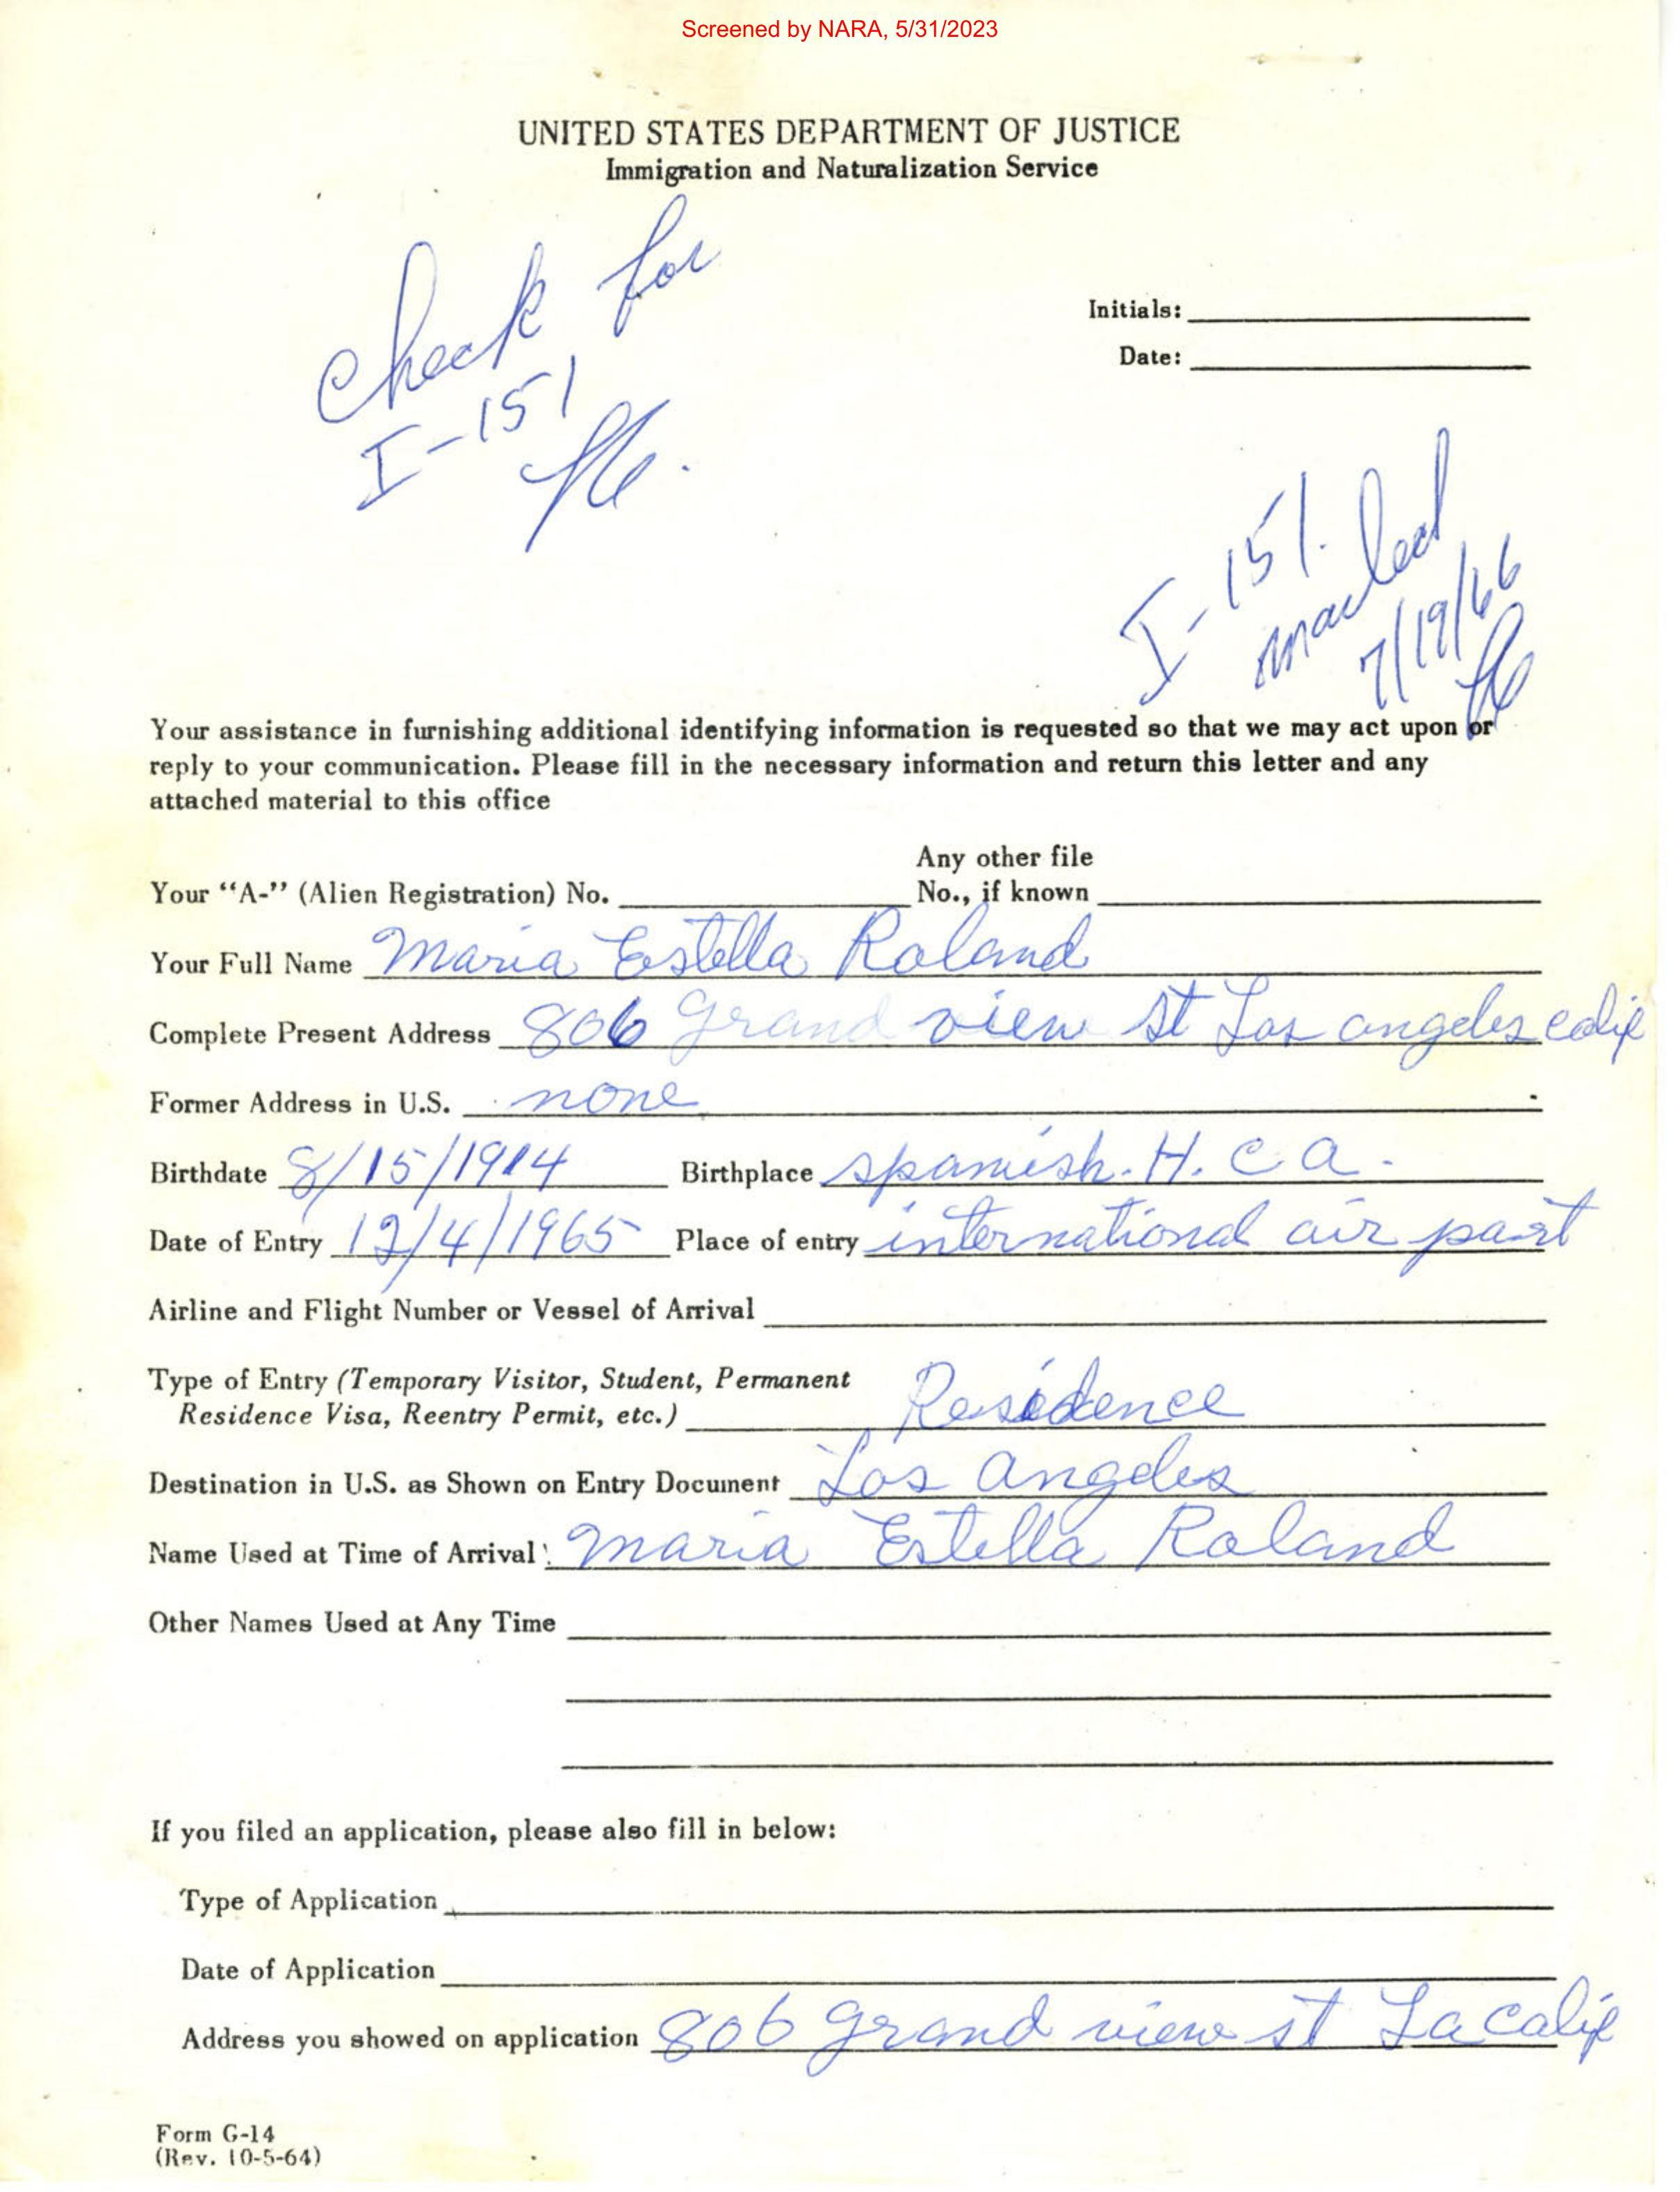 Screened by NARA, 5/31/2023
UNITED STATES DEPARTMENT OF JUSTICE
Immigration and Naturalization Service
Check for
I-151
Initials:
Date:
I-151.
mailed
7/19/66
Your assistance in furnishing additional identifying information is requested so that we may act upon or
reply to your communication. Please fill in the necessary information and return this letter and any
attached material to this office
Your "A-" (Alien Registration) No. Any other file No., if known
Your Full Name Maria Estella Roland
Complete Present Address 806 Grand view st Los angeles calif
Former Address in U.S. none
Birthdate 8/15/1914 Birthplace spanish. H. C a.
Date of Entry 12/4/1965 Place of entry international air port
Airline and Flight Number or Vessel of Arrival
Type of Entry (Temporary Visitor, Student, Permanent
Residence Visa, Reentry Permit, etc.) Residence
Destination in U.S. as Shown on Entry Document Los angeles
Name Used at Time of Arrival: Maria Estella Roland
Other Names Used at Any Time
If you filed an application, please also fill in below:
Type of Application
Date of Application
Address you showed on application 806 grand view st La calif
Form G-14
(Rev. 10-5-64)